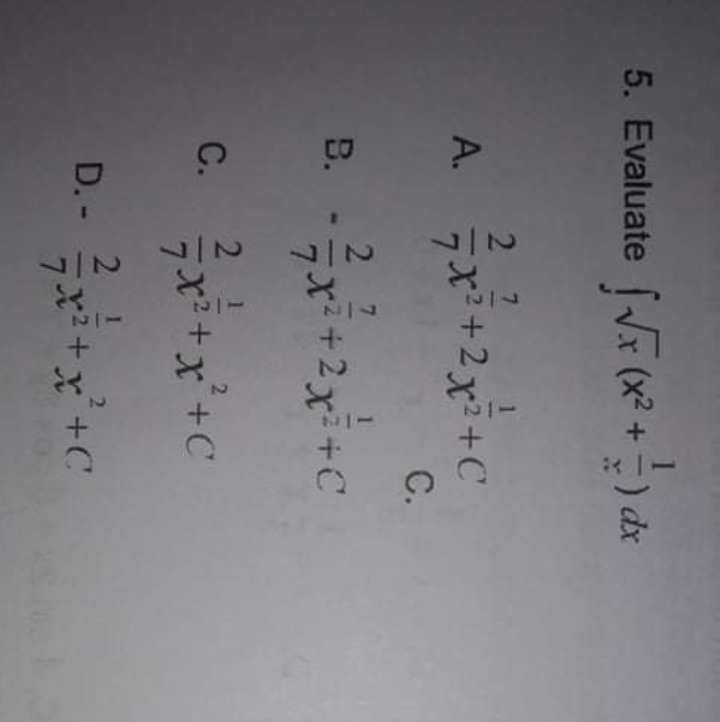 5. Evaluate ∫ √x (x² + 1/x) dx
A. 2/7 x^(7/2) + 2x^(1/2) + C
C.
B. - 2/7 x^(7/2) + 2x^(1/2) + C
C. 2/7 x^(1/2) + x² + C
D. - 2/7 x^(1/2) + x² + C